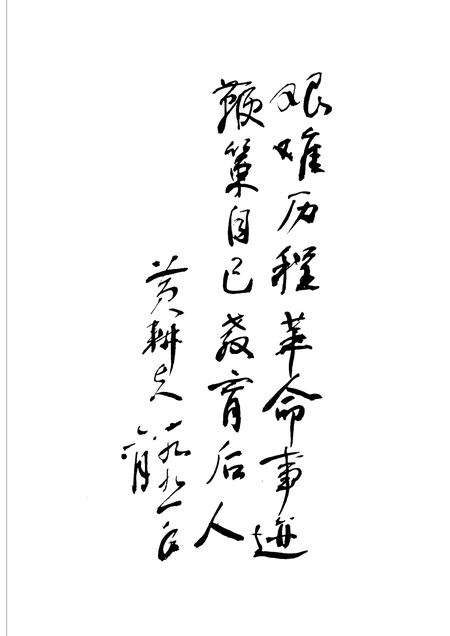 艰难历程革命事迹
鞭策自己教育后人
黄耕夫 一九九一年
六月